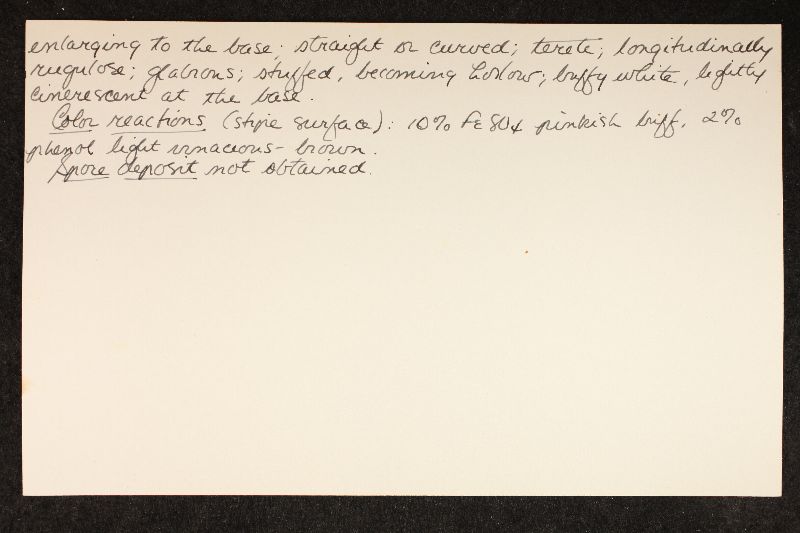 enlarging to the base; straight or curved; terete; longitudinally
rugulose; glabrous; stuffed, becoming hollow; buffy white, lightly
cinerescent at the base.
Color reactions (stipe surface): 10% FeSO4 pinkish buff. 2%
phenol light vinaceous-brown.
Spore deposit not obtained.